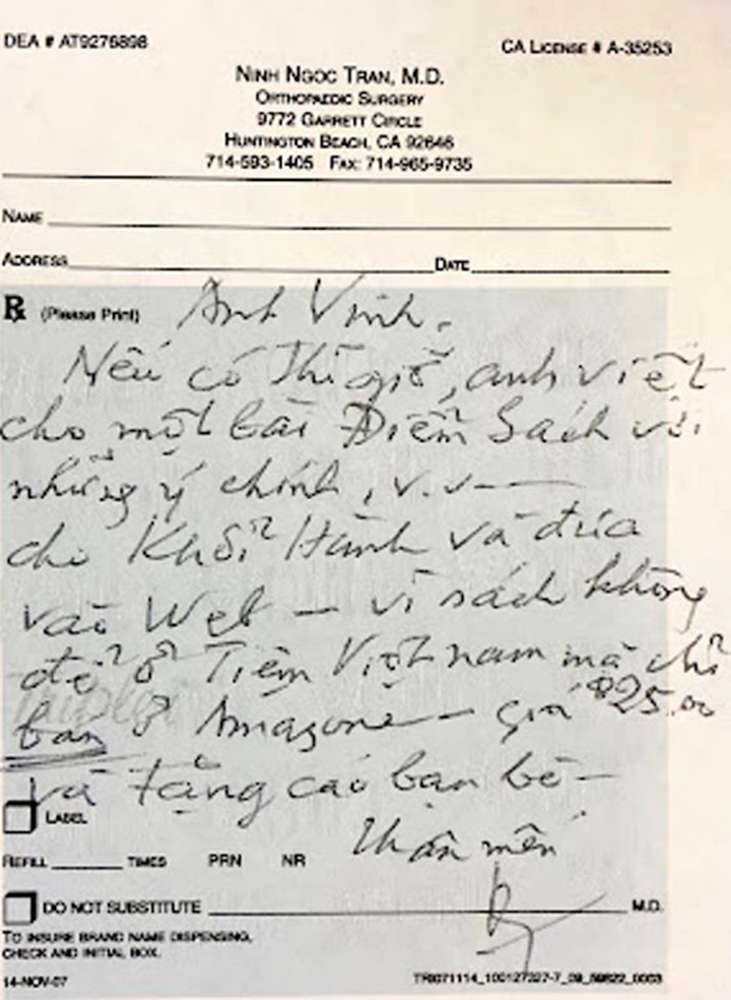 DEA # AT9276898
CA LICENSE # A-35253
NINH NGOC TRAN, M.D.
ORTHOPAEDIC SURGERY
9772 GARRETT CIRCLE
HUNTINGTON BEACH, CA 92646
714-593-1405 FAX: 714-965-9735
NAME
ADDRESS DATE
℞ (Please Print) Anh Vinh.
Nếu có thì giờ, anh viết
cho một bài Điểm Sách với
những ý chính, v.v—
cho Khởi Hành và đưa
vào Web — vì sách không
để ở Tiệm Việt nam mà chỉ
bán ở Amazone — giá $25.00
và tặng các bạn bè —
LABEL
Thân mến
REFILL TIMES PRN NR
DO NOT SUBSTITUTE M.D.
TO INSURE BRAND NAME DISPENSING,
CHECK AND INITIAL BOX.
14-NOV-07